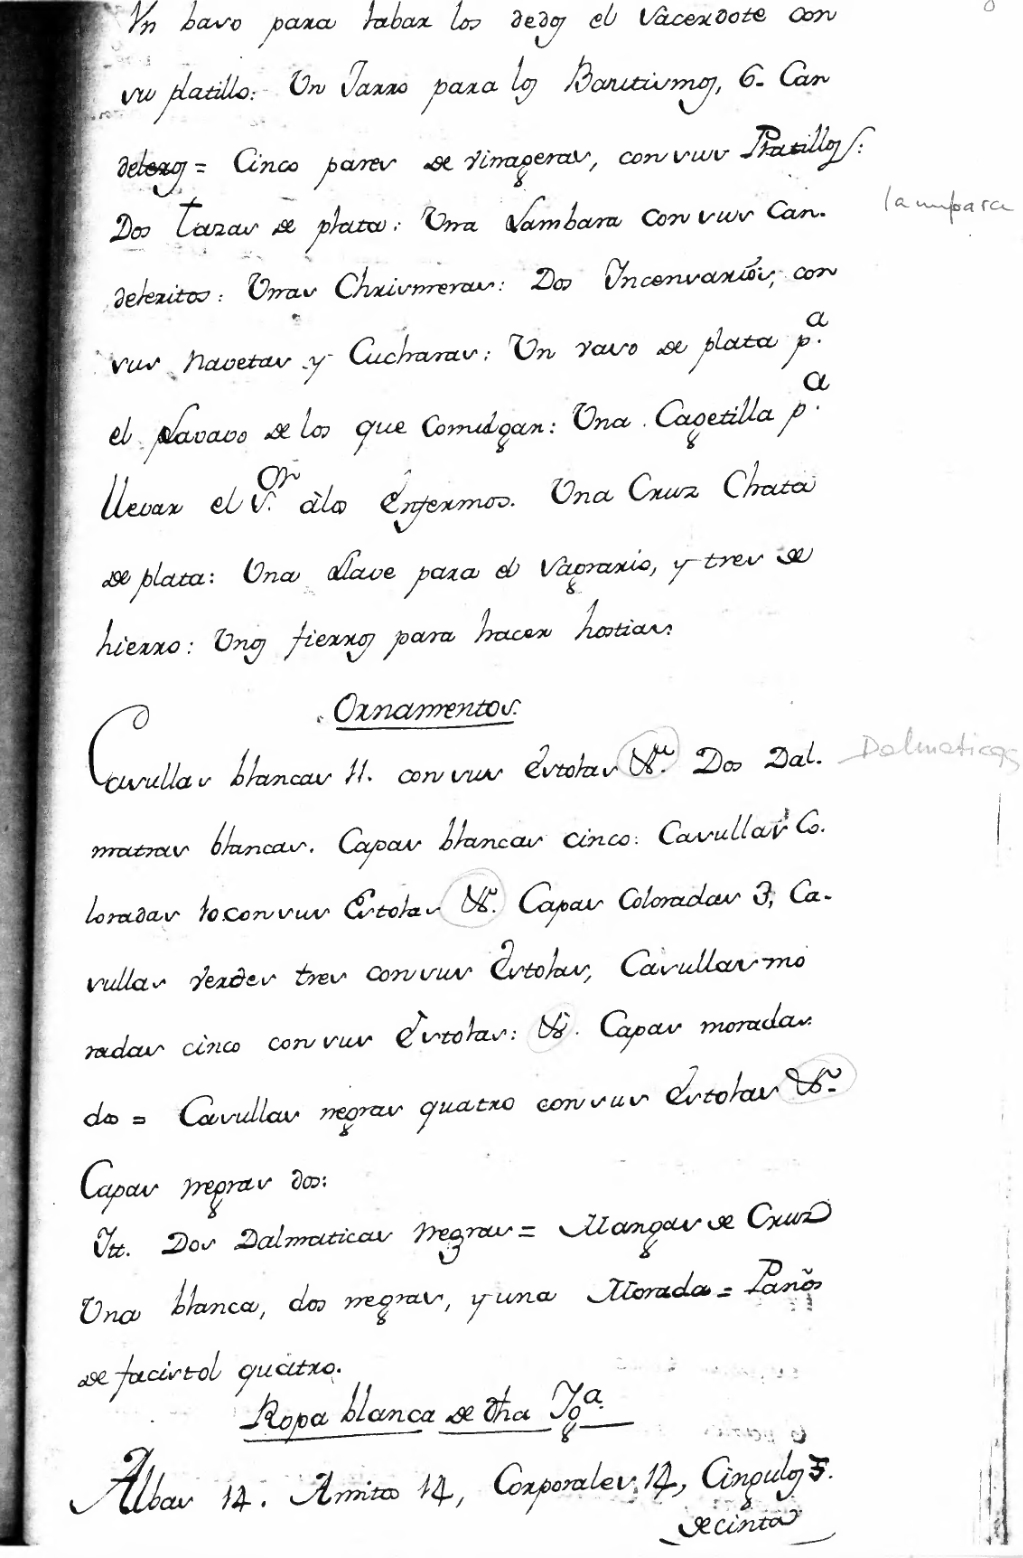 Un baso para labar los dedos el Sacerdote con
su platillo: Un Jarro para los Bautismos, 6. Can
deleros = Cinco pares de vinageras, con sus Platillos:
Dos tazas de plata: Una Lambara con sus Can-
lampara
deleritos: Unas Chrismeras: Dos Incensarios, con
sus navetas y Cucharas: Un vaso de plata p.a
el Lavavo de los que Comulgan: Una Cagetilla p.a
llevar el S.or â los Enfermos. Una Cruz Chata
de plata: Una Llave para el Sagrario, y tres de
hierro: Unos fierros para hacer hostias:
Ornamentos.
Casullas blancas 11. con sus Estolas &.a Dos Dal-
Dalmaticas
matias blancas. Capas blancas cinco: Casullas Co-
loradas 10 con sus Estolas &.a Capas Coloradas 3, Ca-
sullas verdes tres con sus Estolas, Casullas mo
radas cinco con sus Estolas: &.a Capas moradas
dos = Casullas negras quatro con sus Estolas &.a
Capas negras dos:
Itt. Dos Dalmaticas Negras = Mangas de Cruz
Una blanca, dos negras, y una Morada = Paños
de facistol quatro.
Ropa blanca de dha Yg.a
Albas 14. Amitos 14, Corporales 14, Cingulos 5.
de cinta